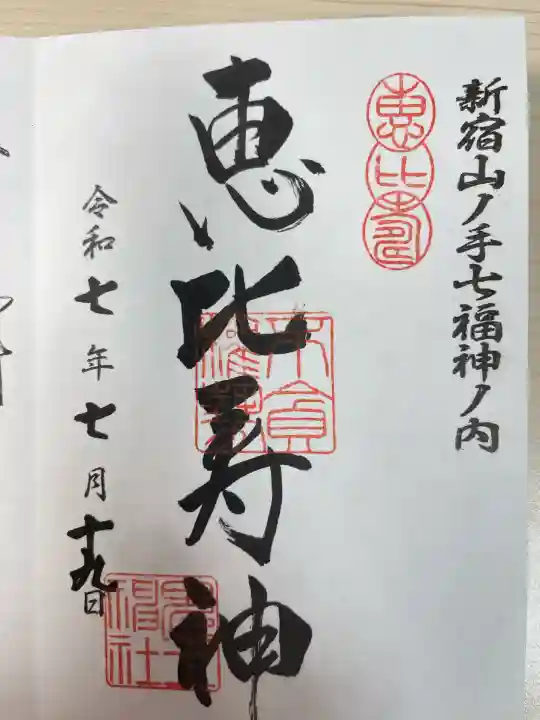 新宿山ノ手七福神ノ内
恵比寿
恵比寿神
令和七年七月十九日